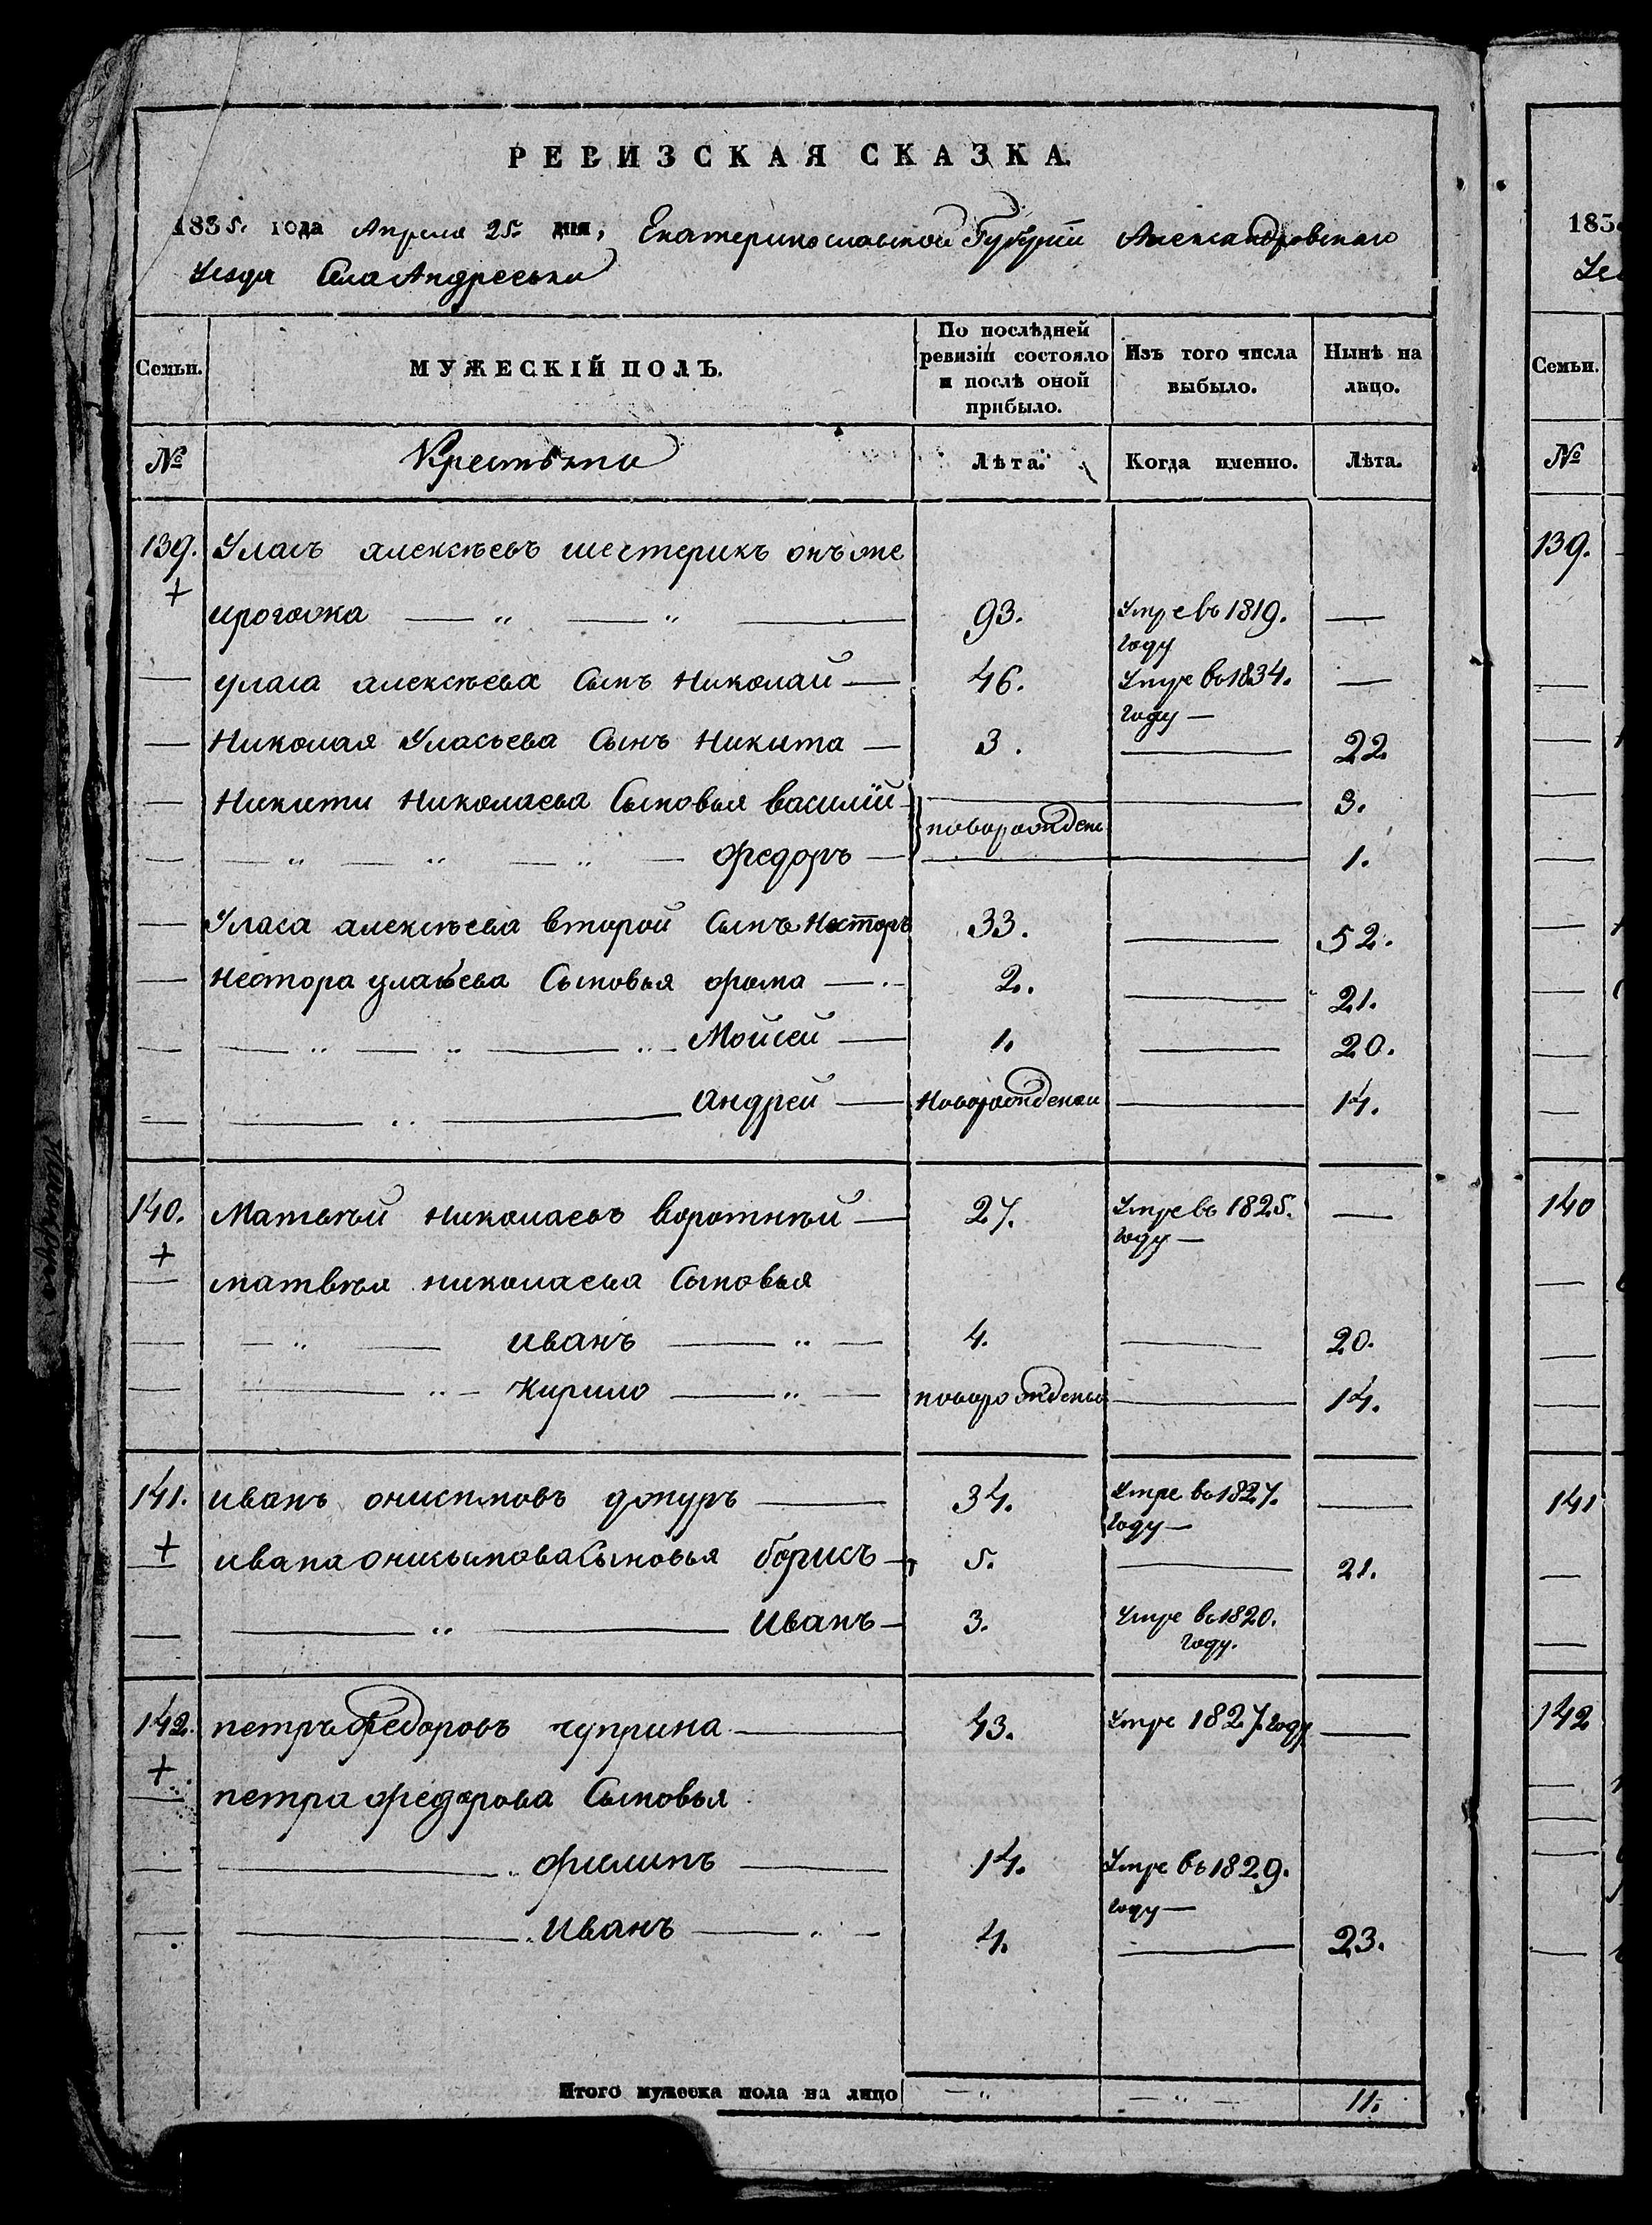 РЕВИЗСКАЯ СКАЗКА.
1835. года Апреля 25. дня, Екатеринославской Губернии Александровскаго
Уезда Села Андреевки
Семьи.
МУЖЕСКІЙ ПОЛЪ.
По послѣдней ревизіи состояло и послѣ оной прибыло.
Изъ того числа выбыло.
Нынѣ на лицо.
№ Крестьяне Лѣта. Когда именно. Лѣта.
139. Уласъ алексѣевъ шестерикъ онъ же
+ 93. Умре въ 1819. —
году
— уласа алексѣева Сынъ Николай — 46. Умре въ 1834. —
году —
— Николая Уласьева Сынъ Никита — 3. — 22.
— Никити Николаева Сыновья василій — — 3.
новорожден
— — „ — „ — „ — федоръ — — — 1.
— Уласа алексѣева второй Сынъ Несторъ 33. — 52.
— Нестора уласьева Сыновья фома — 2. — 21.
— — „ — „ — „ — Мойсей — 1. — 20.
— — „ — андрей — Новорожденни — 14.
140. Матвѣй николаевъ воротнѣй — 27. Умре въ 1825. —
году —
+
— матвѣя николаева Сыновья
— — „ — иванъ — „ — 4. — 20.
— — „ — Кирило — „ — новорожденые — 14.
141. иванъ онисимовъ 34. Умре въ 1827. —
году —
+
— ивана онисимова Сыновья борисъ — 5. — 21.
— — „ — Иванъ — 3. Умре въ 1820.
году.
142. петръ федоровъ чуприна — 43. Умре 1827. году —
+
— петра федорова Сыновья
— — „ филипъ — 14. Умре въ 1829.
году —
— — „ Иванъ — „ — 4. — 23.
Итого мужеска пола на лицо — „ — „ — 11.
183
Семьи.
№
139.
140
141
142